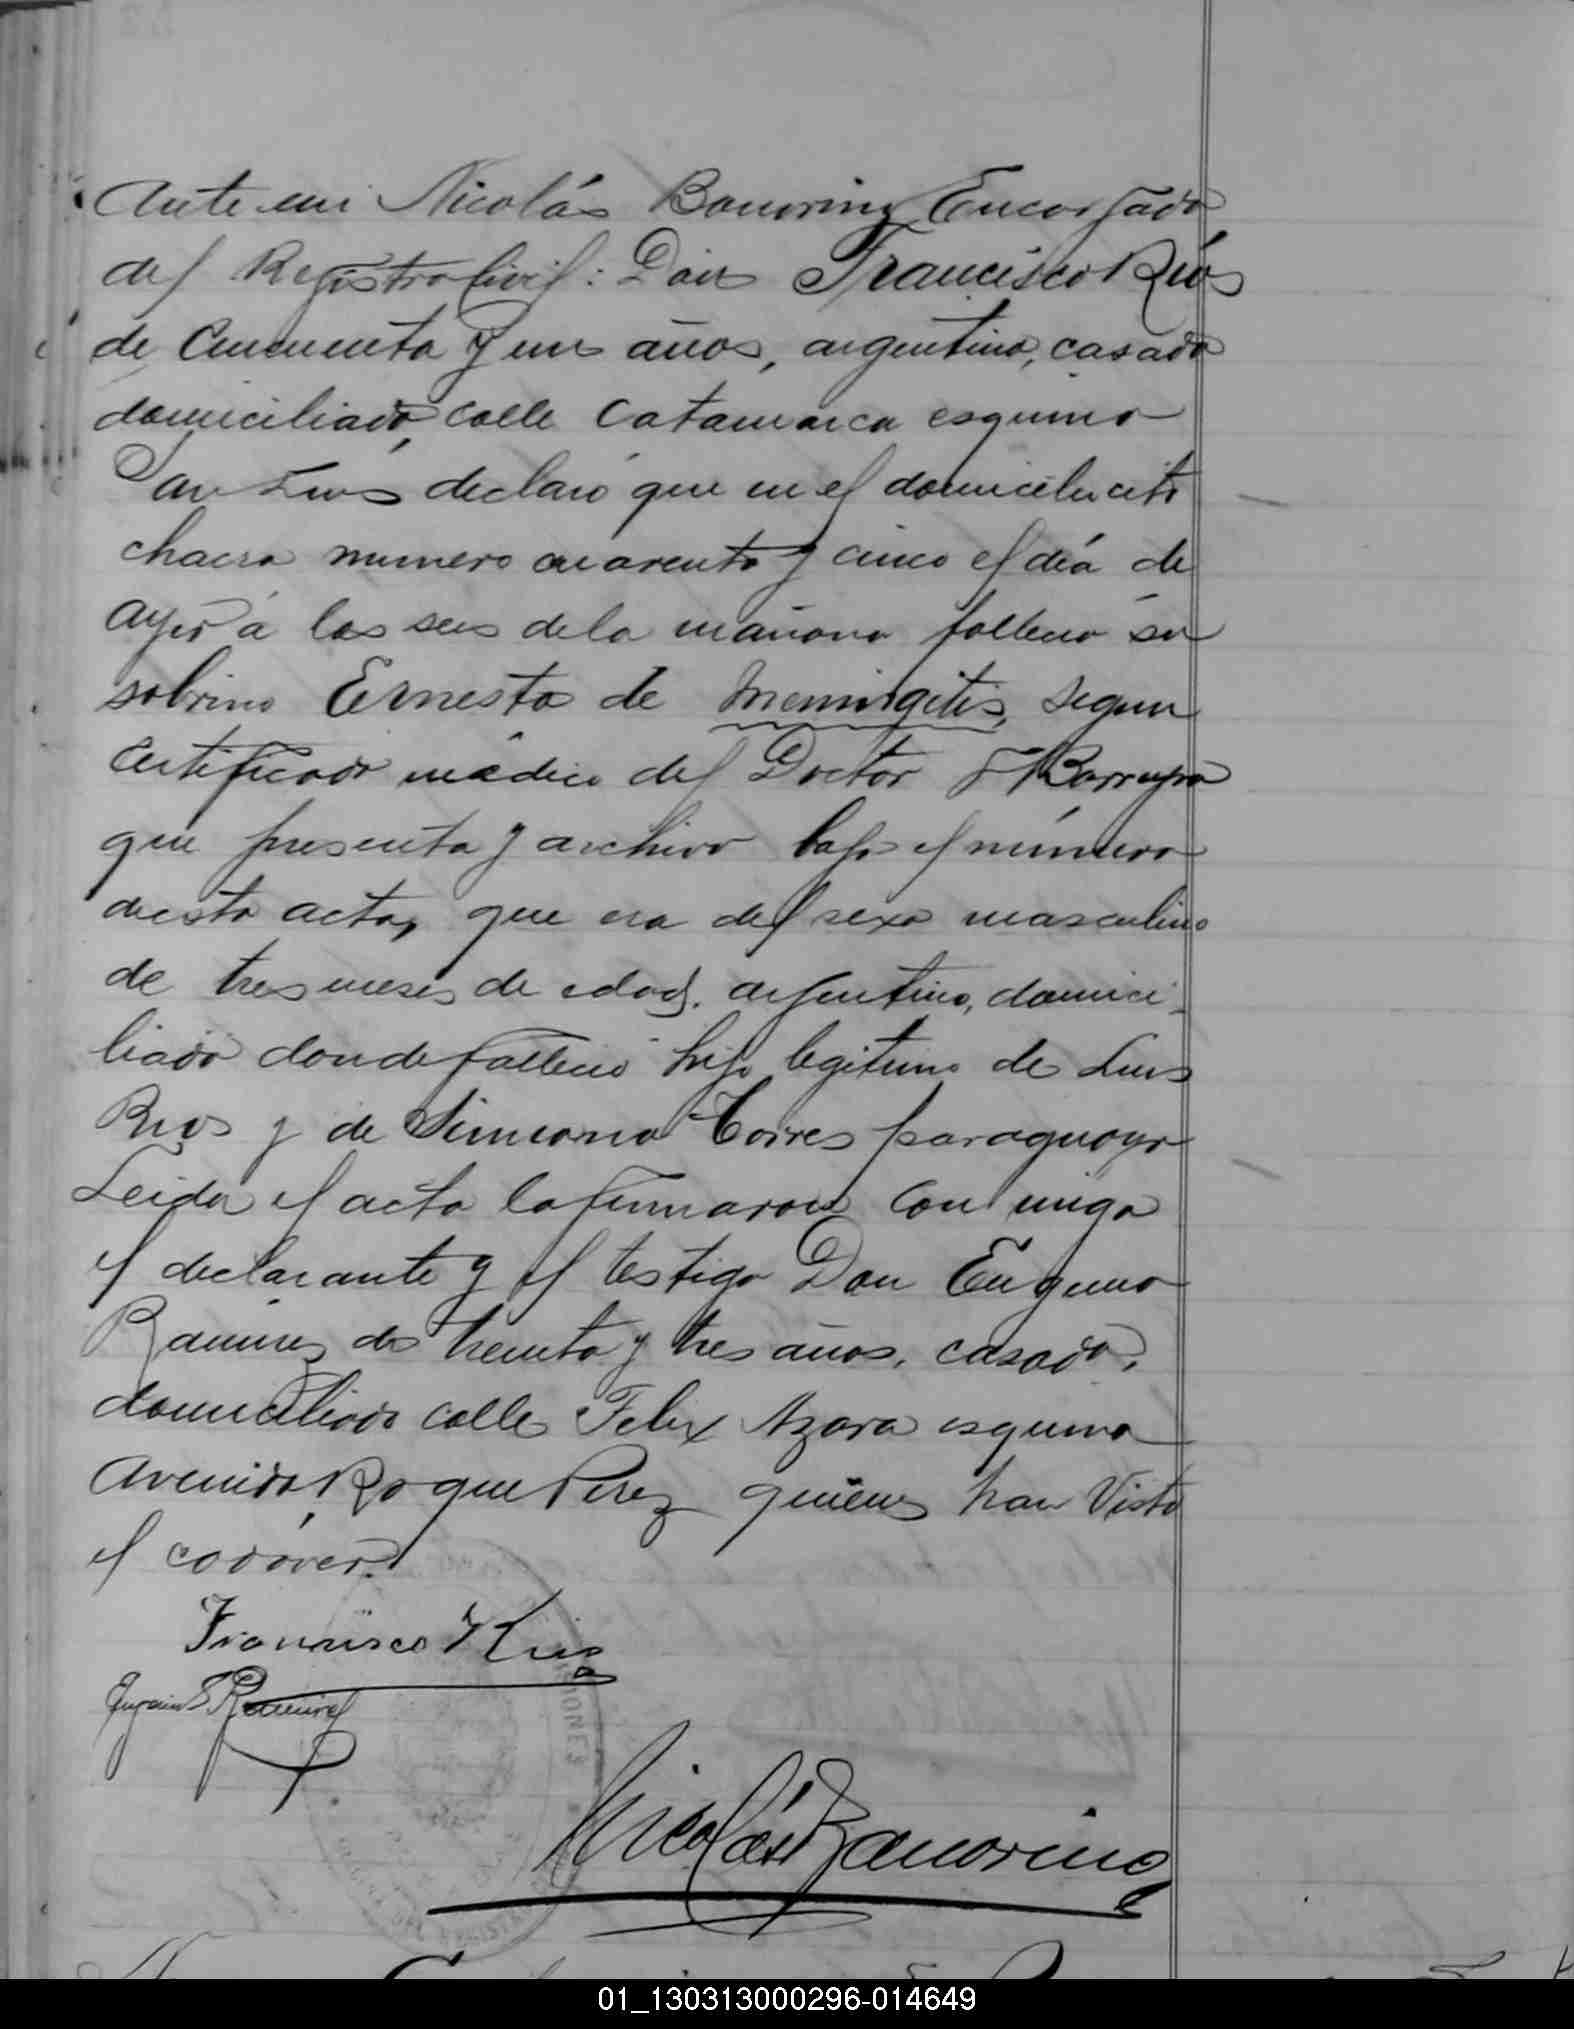 Ante mi Nicolás Bonorino Encargado
del Registro Civil: Don Francisco Rios
de Cincuenta y un años, argentino, casado
domiciliado, calle Catamarca esquina
San Luis declaró que en el domicilio cito
chacra numero cuarenta y cinco el día de
ayer á las seis de la mañana fallecio su
sobrino Ernesto de Meningitis, segun
certificado médico del Doctor Barreyro
que presenta y archivo bajo el número
de esta acta, que era del sexo masculino
de tres meses de edad, argentino, domici-
liado donde falleció hijo legitimo de Luis
Rios y de Simeona Torres paraguaya
Leida el acta la firmaron con migo
el declarante y el testigo Don Eugenio
Ramirez de treinta y tres años, casado,
domiciliado calle Felix Azara esquina
Avenida Roque Perez quienes han Visto
el cadáver.
Francisco Rios
Eugenio Ramirez
MISIONES
Nicolás Bonorino
01_130313000296-014649